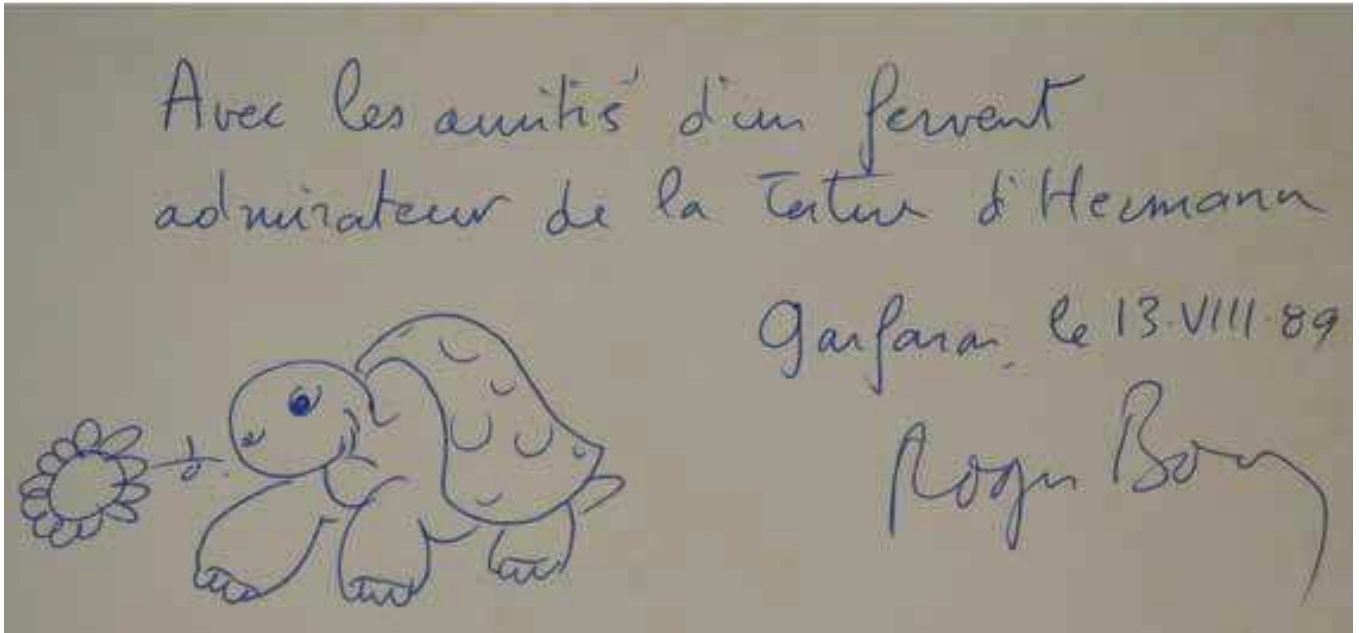 Avec les amitiés d'un fervent
admirateur de la Tortue d'Hermann
le 13.VIII.89
Roger